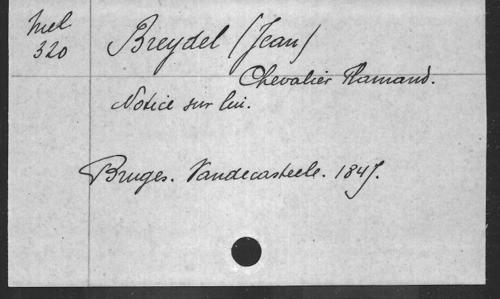 Mel
320
Breydel (Jean)
Chevalier Flamand.
Notice sur lui.
Bruges. Vandecasteele. 1847.